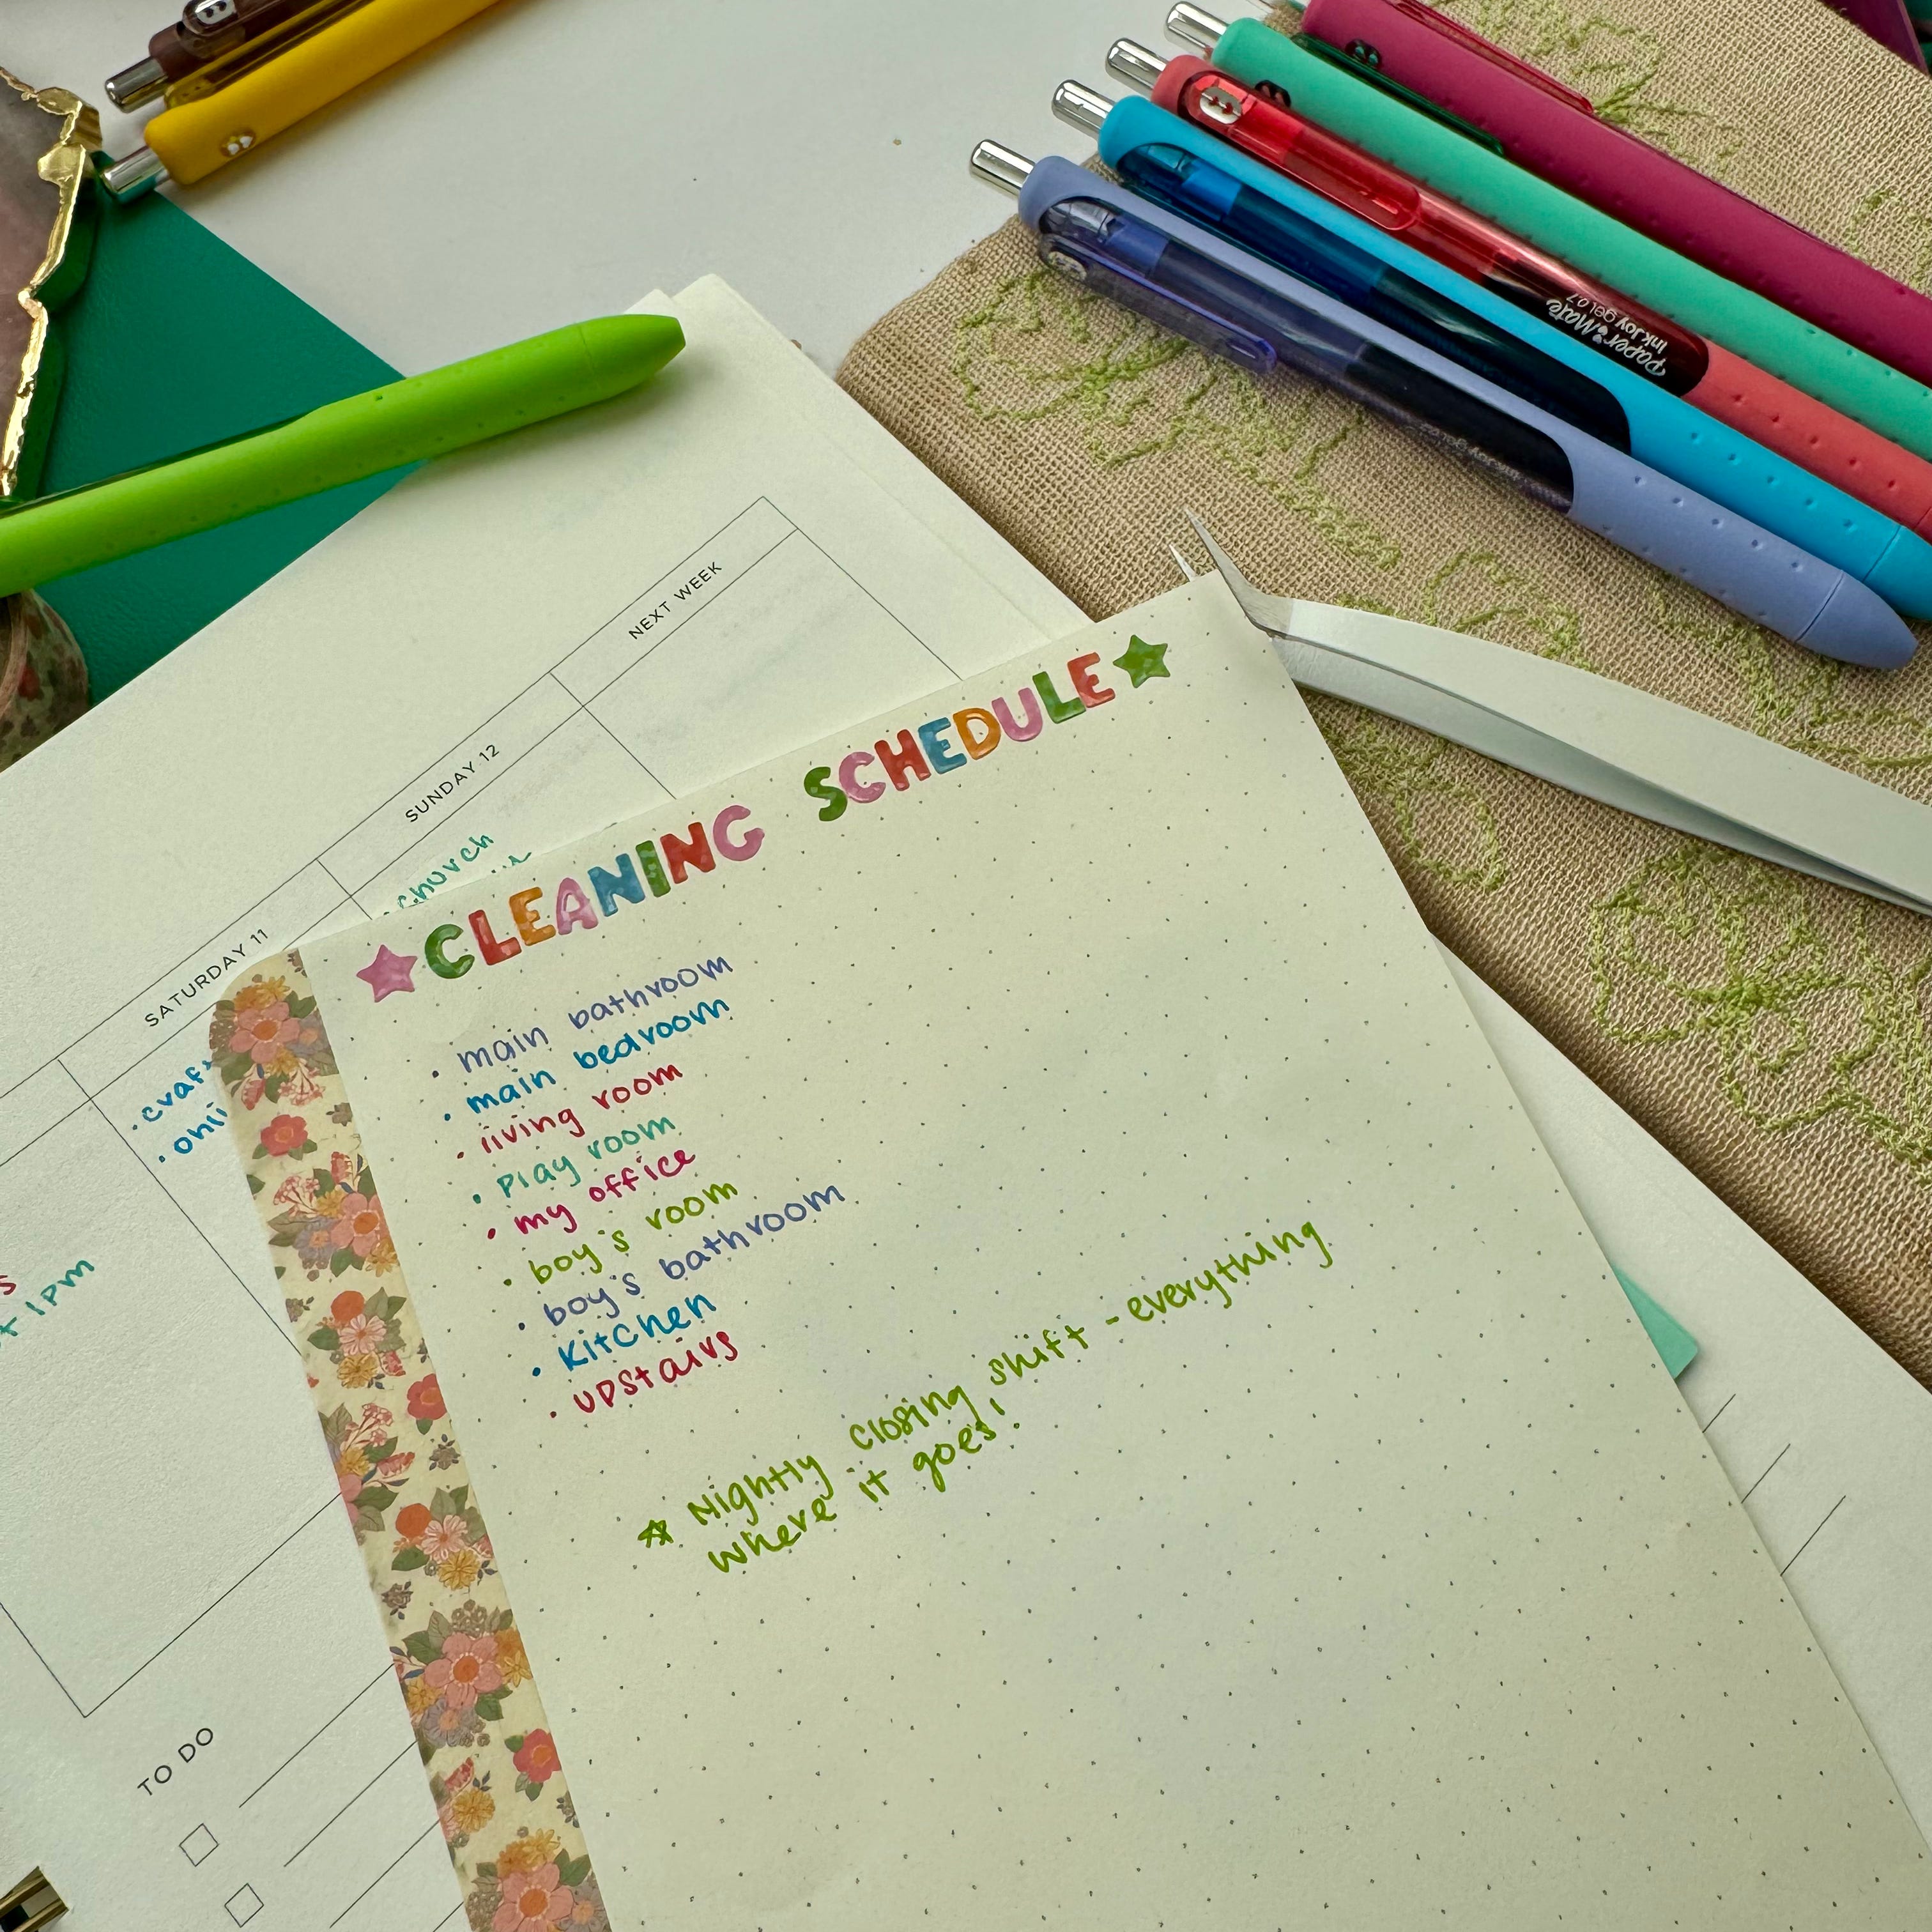 Paper Mate
InkJoy gel 0.7
InkJoy gel 0.7
NEXT WEEK
SUNDAY 12
church
SATURDAY 11
1pm
CLEANING SCHEDULE
• main bathroom
• main bedroom
• living room
• play room
• my office
• boy's room
• boy's bathroom
• Kitchen
• upstairs
☆ Nightly closing shift - everything
where it goes!
TO DO